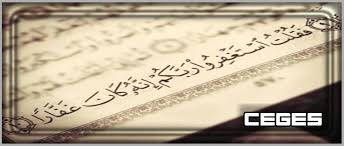 فَقُلْتُ اسْتَغْفِرُوا رَبَّكُمْ إِنَّهُ كَانَ غَفَّارًا
CEGES